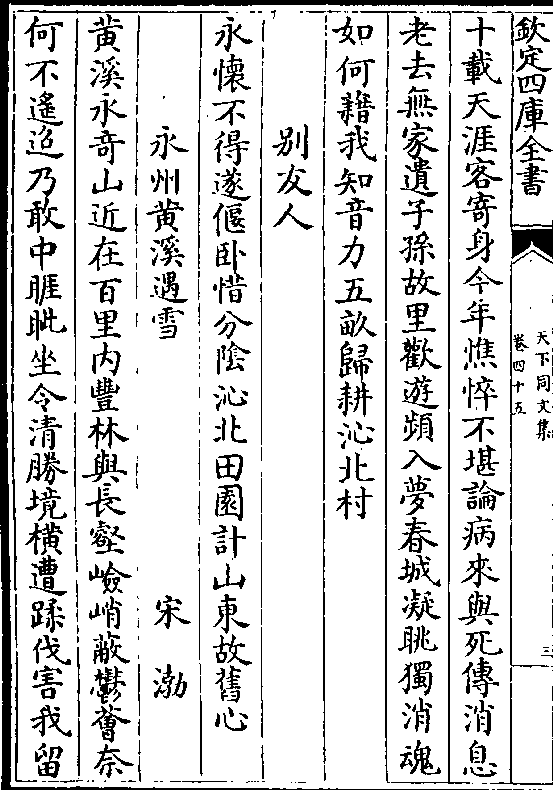 欽定四庫全書
天下同文集
卷四十五
三
十載天涯客寄身今年憔悴不堪論病來與死傳消息
老去無家遺子孫故里歡遊頻入夢春城凝眺獨消魂
如何藉我知音力五畝歸耕沁北村
別友人
永懷不得遂偃卧惜分陰沁北田園計山東故舊心
永州黄溪遇雪
宋渤
黄溪永竒山近在百里内豐林與長壑嶮峭蔽鬱薈奈
何不遙迨乃敢中睚眦坐令清勝境橫遭蹂伐害我留